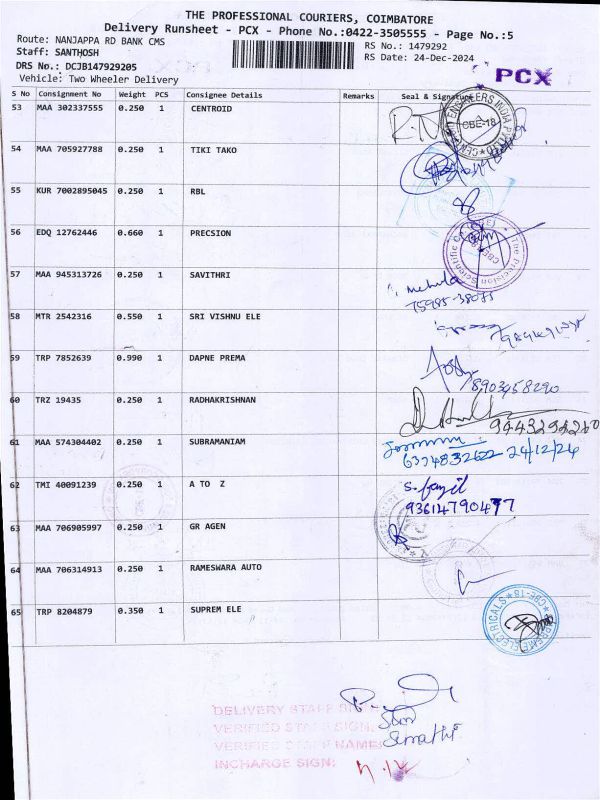 THE PROFESSIONAL COURIERS, COIMBATORE
Delivery Runsheet - PCX - Phone No.:0422-3505555 - Page No.:5
Route: NANJAPPA RD BANK CMS
RS No.: 1479292
Staff: SANTHOSH
RS Date: 24-Dec-2024
DRS No.: DCJB147929205
PCX
Vehicle: Two Wheeler Delivery
S No Consignment No Weight PCS Consignee Details Remarks Seal & Signature
53 MAA 302337555 0.250 1 CENTROID
CBE-18
54 MAA 705927788 0.250 1 TIKI TAKO
55 KUR 7002895045 0.250 1 RBL
56 EDQ 12762446 0.660 1 PRECSION
The Precision Scientific
57 MAA 945313726 0.250 1 SAVITHRI
Mehula
58 MTR 2542316 0.550 1 SRI VISHNU ELE
59 TRP 7852639 0.990 1 DAPNE PREMA
8903458290
60 TRZ 19435 0.250 1 RADHAKRISHNAN
9443294260
61 MAA 574304402 0.250 1 SUBRAMANIAM
24/12/24
62 TMI 40091239 0.250 1 A TO Z
93614790477
63 MAA 706905997 0.250 1 GR AGEN
64 MAA 706314913 0.250 1 RAMESWARA AUTO
65 TRP 8204879 0.350 1 SUPREM ELE
CBE-18
DELIVERY STAFF SIGN:
VERIFIED STAFF SIGN:
VERIFIED STAFF NAME:
INCHARGE SIGN: